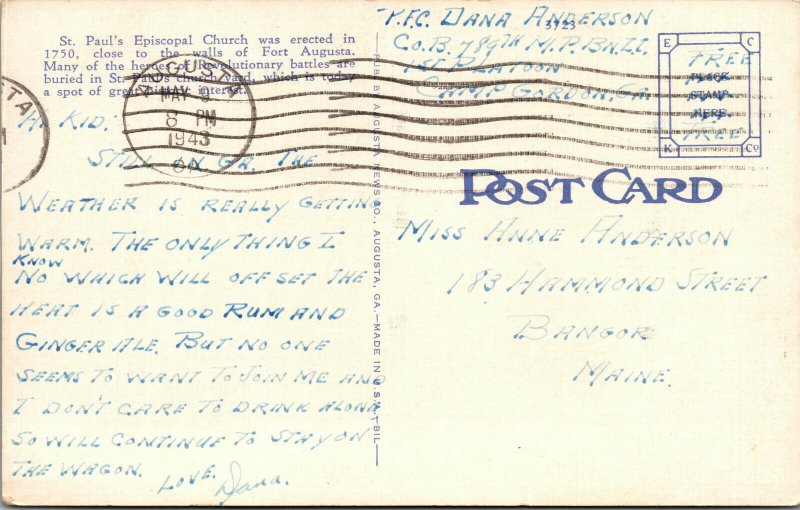 St. Paul's Episcopal Church was erected in
1750, close to the walls of Fort Augusta.
Many of the heroes of Revolutionary battles are
buried in St. Paul's church yard, which is today
a spot of great historic interest.
AUGUSTA
MAY 3
8 PM
1943
GA.
HI KID:
STILL IN GA. THE
WEATHER IS REALLY GETTING
WARM. THE ONLY THING I
KNOW
NO WHICH WILL OFF SET THE
HEAT IS A GOOD RUM AND
GINGER ALE. BUT NO ONE
SEEMS TO WANT TO JOIN ME AND
I DON'T CARE TO DRINK ALONE,
SO WILL CONTINUE TO STAY ON
THE WAGON.
LOVE.
Dana.
PUB. BY AUGUSTA NEWS CO., AUGUSTA, GA.—MADE IN U.S.A.—BIL
P.F.C. DANA ANDERSON
3723
CO. B. 789TH M.P. BN. Z.I.
1ST PLATOON
CAMP GORDON, GA
E C
FREE
PLACE
STAMP
HERE
FREE
K Co
POST CARD
MISS ANNE ANDERSON
183 HAMMOND STREET
BANGOR
MAINE.